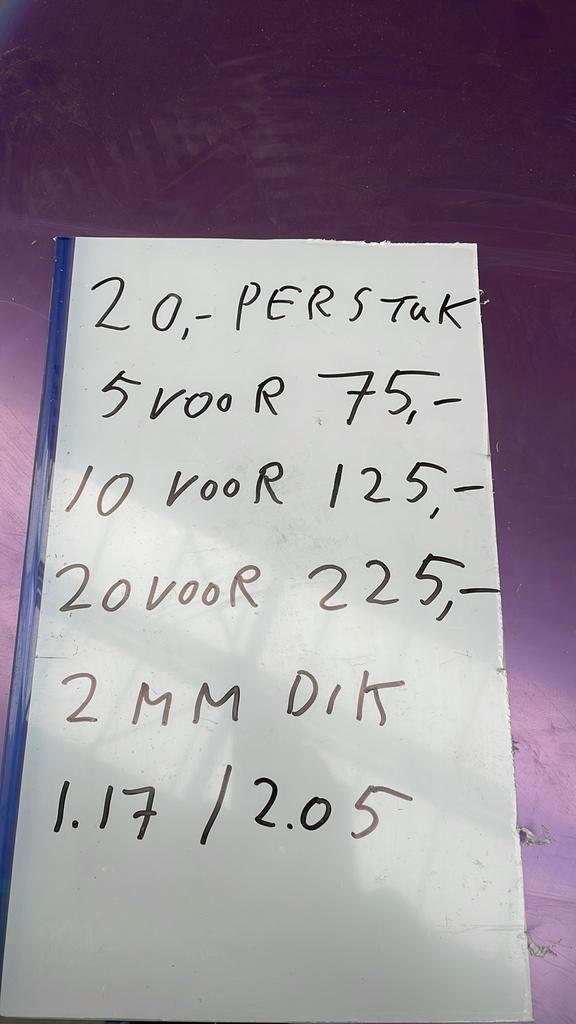 20,- PER STUK
5 VOOR 75,-
10 VOOR 125,-
20 VOOR 225,-
2 MM DIK
1.17 / 2.05